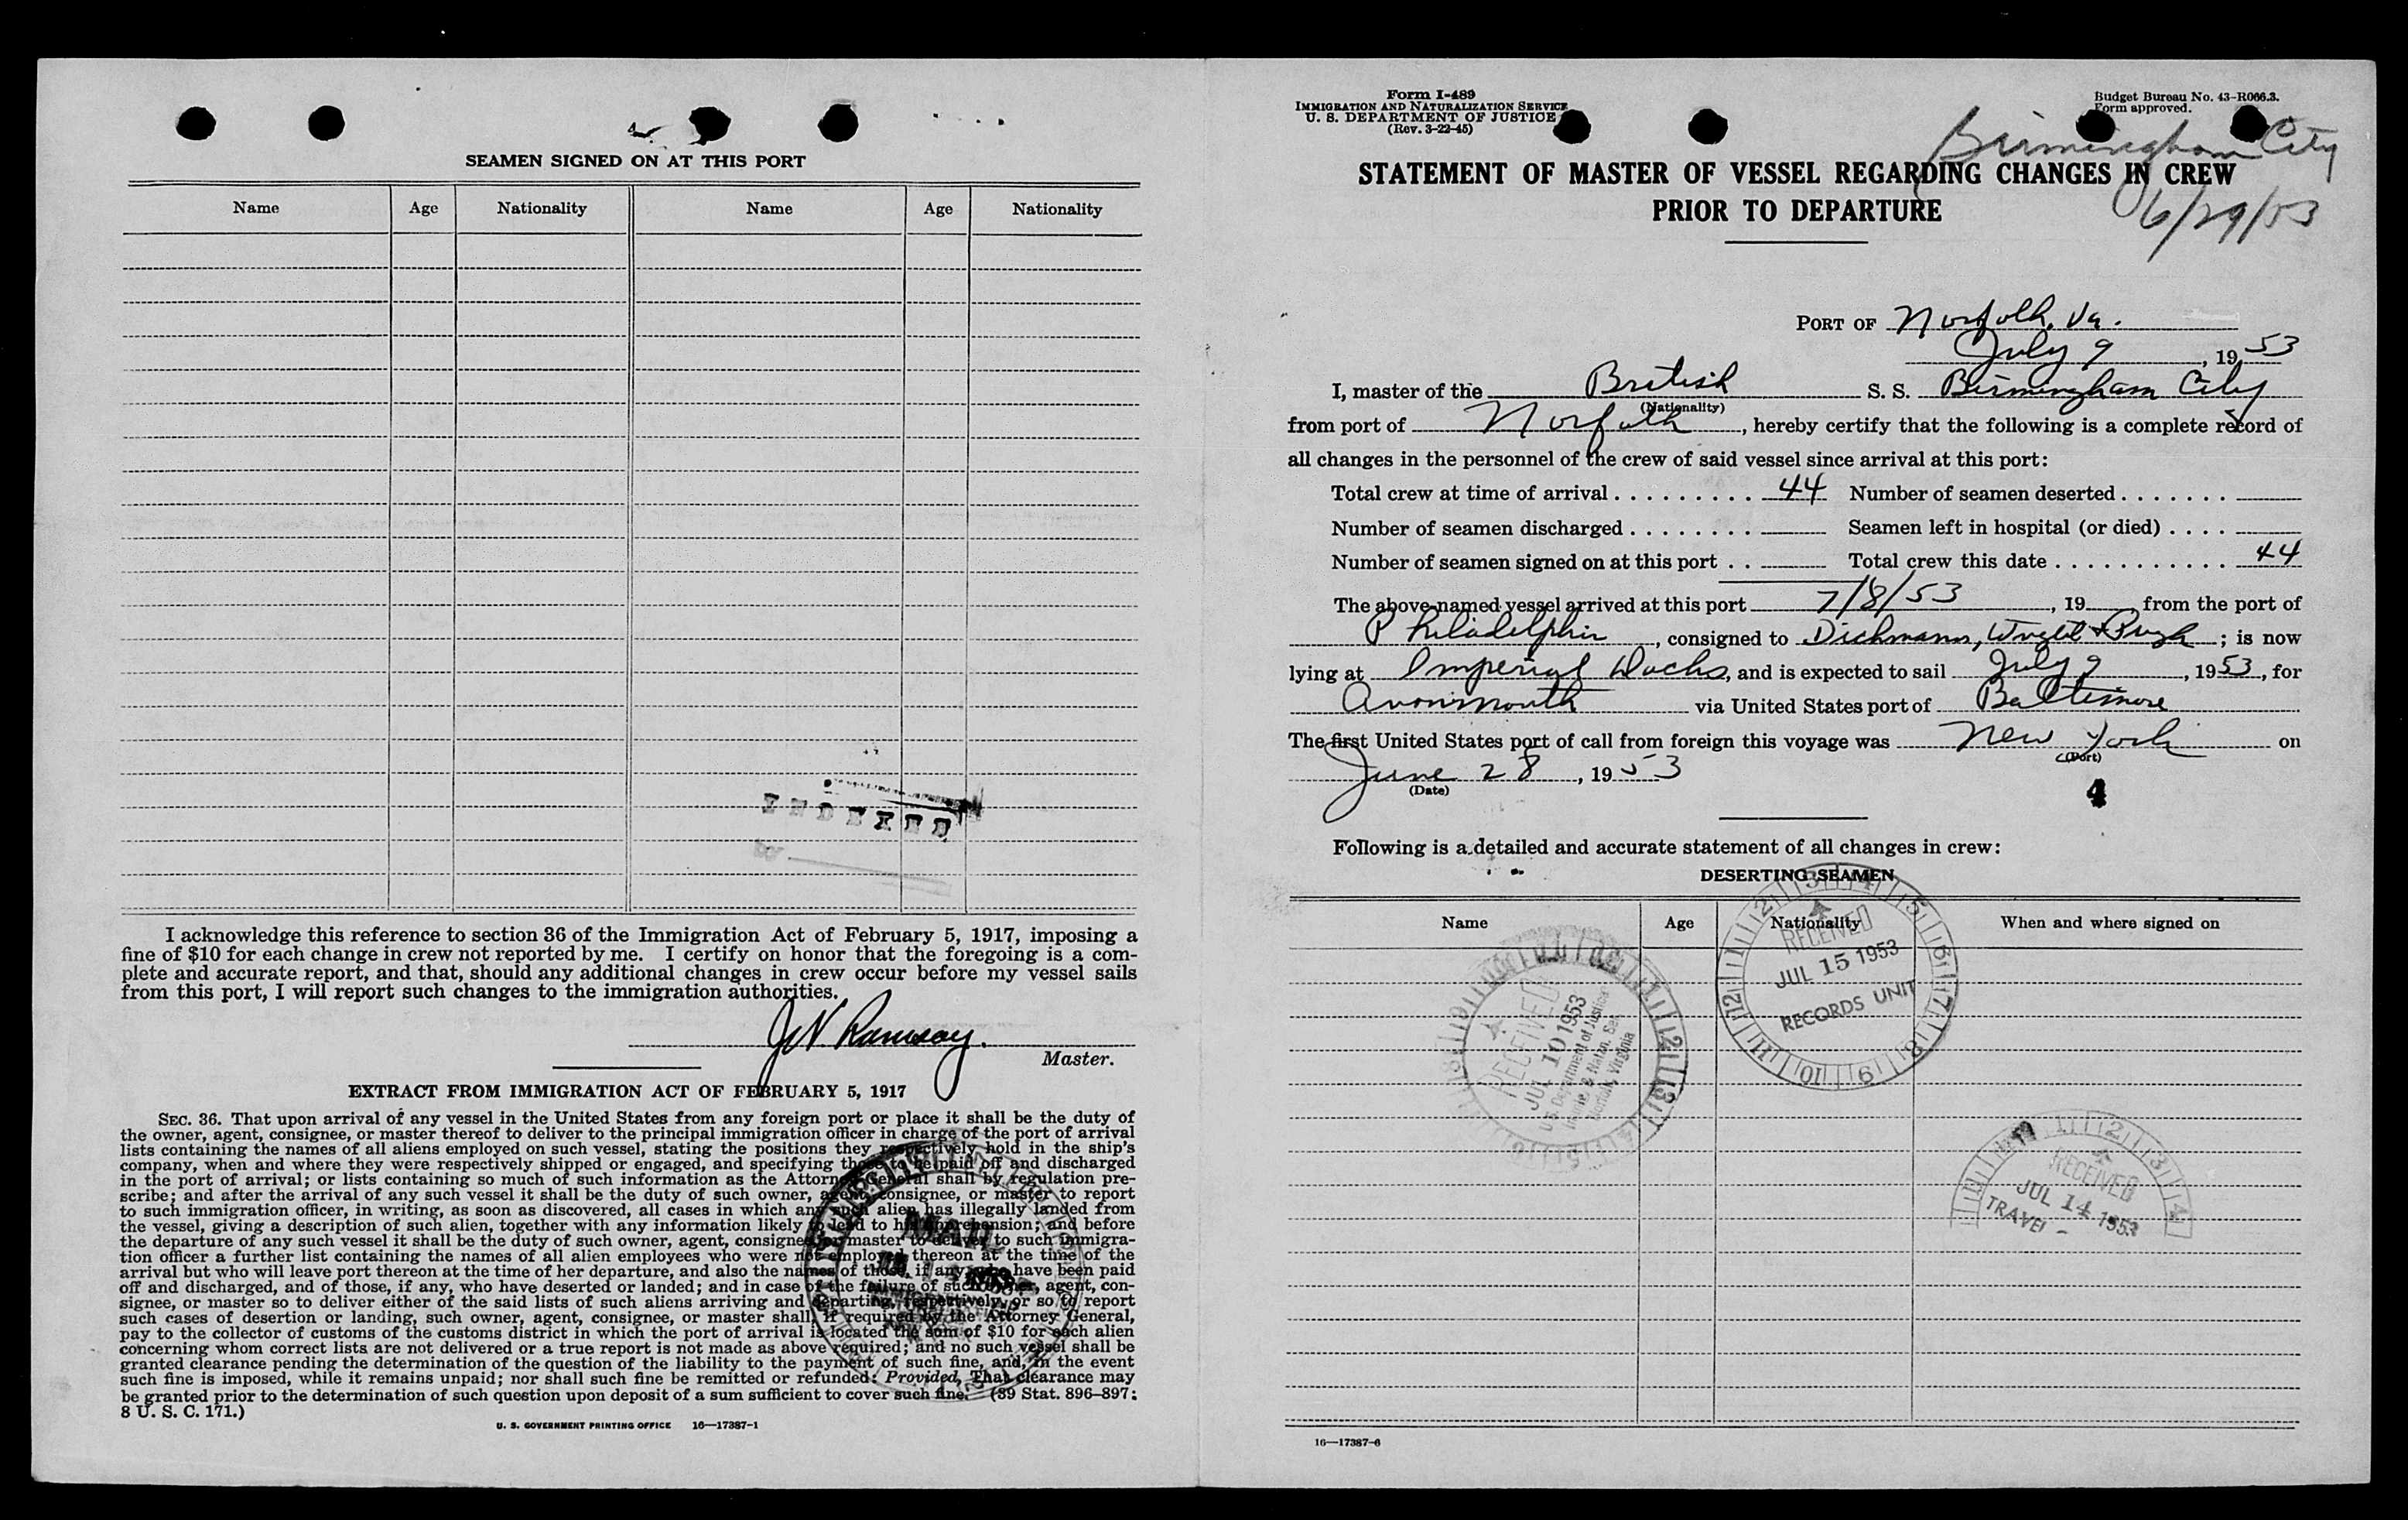 SEAMEN SIGNED ON AT THIS PORT
Name Age Nationality Name Age Nationality
INDEXED
I acknowledge this reference to section 36 of the Immigration Act of February 5, 1917, imposing a
fine of $10 for each change in crew not reported by me. I certify on honor that the foregoing is a com-
plete and accurate report, and that, should any additional changes in crew occur before my vessel sails
from this port, I will report such changes to the immigration authorities.
Ramsay.
Master.
EXTRACT FROM IMMIGRATION ACT OF FEBRUARY 5, 1917
SEC. 36. That upon arrival of any vessel in the United States from any foreign port or place it shall be the duty of
the owner, agent, consignee, or master thereof to deliver to the principal immigration officer in charge of the port of arrival
lists containing the names of all aliens employed on such vessel, stating the positions they respectively hold in the ship's
company, when and where they were respectively shipped or engaged, and specifying those to be paid off and discharged
in the port of arrival; or lists containing so much of such information as the Attorney General shall by regulation pre-
scribe; and after the arrival of any such vessel it shall be the duty of such owner, agent, consignee, or master to report
to such immigration officer, in writing, as soon as discovered, all cases in which any such alien has illegally landed from
the vessel, giving a description of such alien, together with any information likely to lead to his apprehension; and before
the departure of any such vessel it shall be the duty of such owner, agent, consignee, or master to deliver to such immigra-
tion officer a further list containing the names of all alien employees who were not employed thereon at the time of the
arrival but who will leave port thereon at the time of her departure, and also the names of those, if any, who have been paid
off and discharged, and of those, if any, who have deserted or landed; and in case of the failure of such owner, agent, con-
signee, or master so to deliver either of the said lists of such aliens arriving and departing, respectively, or so to report
such cases of desertion or landing, such owner, agent, consignee, or master shall, if required by the Attorney General,
pay to the collector of customs of the customs district in which the port of arrival is located the sum of $10 for each alien
concerning whom correct lists are not delivered or a true report is not made as above required; and no such vessel shall be
granted clearance pending the determination of the question of the liability to the payment of such fine, and, in the event
such fine is imposed, while it remains unpaid; nor shall such fine be remitted or refunded: Provided, That clearance may
be granted prior to the determination of such question upon deposit of a sum sufficient to cover such fine. (39 Stat. 896–897;
8 U. S. C. 171.)
MAIL
U. S. GOVERNMENT PRINTING OFFICE 16—17387-1
Form I-489
IMMIGRATION AND NATURALIZATION SERVICE
U. S. DEPARTMENT OF JUSTICE
(Rev. 3-22-45)
Budget Bureau No. 43-R066.3.
Form approved.
Birmingham City
6/29/53
STATEMENT OF MASTER OF VESSEL REGARDING CHANGES IN CREW
PRIOR TO DEPARTURE
PORT OF Norfolk, Va.
July 9, 1953
I, master of the British S. S. Birmingham City
(Nationality)
from port of Norfolk, hereby certify that the following is a complete record of
all changes in the personnel of the crew of said vessel since arrival at this port:
Total crew at time of arrival ......... 44 Number of seamen deserted .......
Number of seamen discharged ........ Seamen left in hospital (or died) ....
Number of seamen signed on at this port .. Total crew this date ........... 44
The above-named vessel arrived at this port 7/8/53, 19 from the port of
Philadelphia, consigned to Dichmann, Wright & Pugh; is now
lying at Imperial Docks, and is expected to sail July 9, 1953, for
Avonmouth via United States port of Baltimore
The first United States port of call from foreign this voyage was New York on
(Port)
June 28, 1953
(Date)
4
Following is a detailed and accurate statement of all changes in crew:
DESERTING SEAMEN
Name Age Nationality When and where signed on
RECEIVED
JUL 15 1953
RECORDS UNIT
RECEIVED
JUL 10 1953
U.S. Department of Justice
Immig. & Natzn. Ser.
Norfolk, Virginia
RECEIVED
JUL 14 1953
TRAVEL
16—17387-6